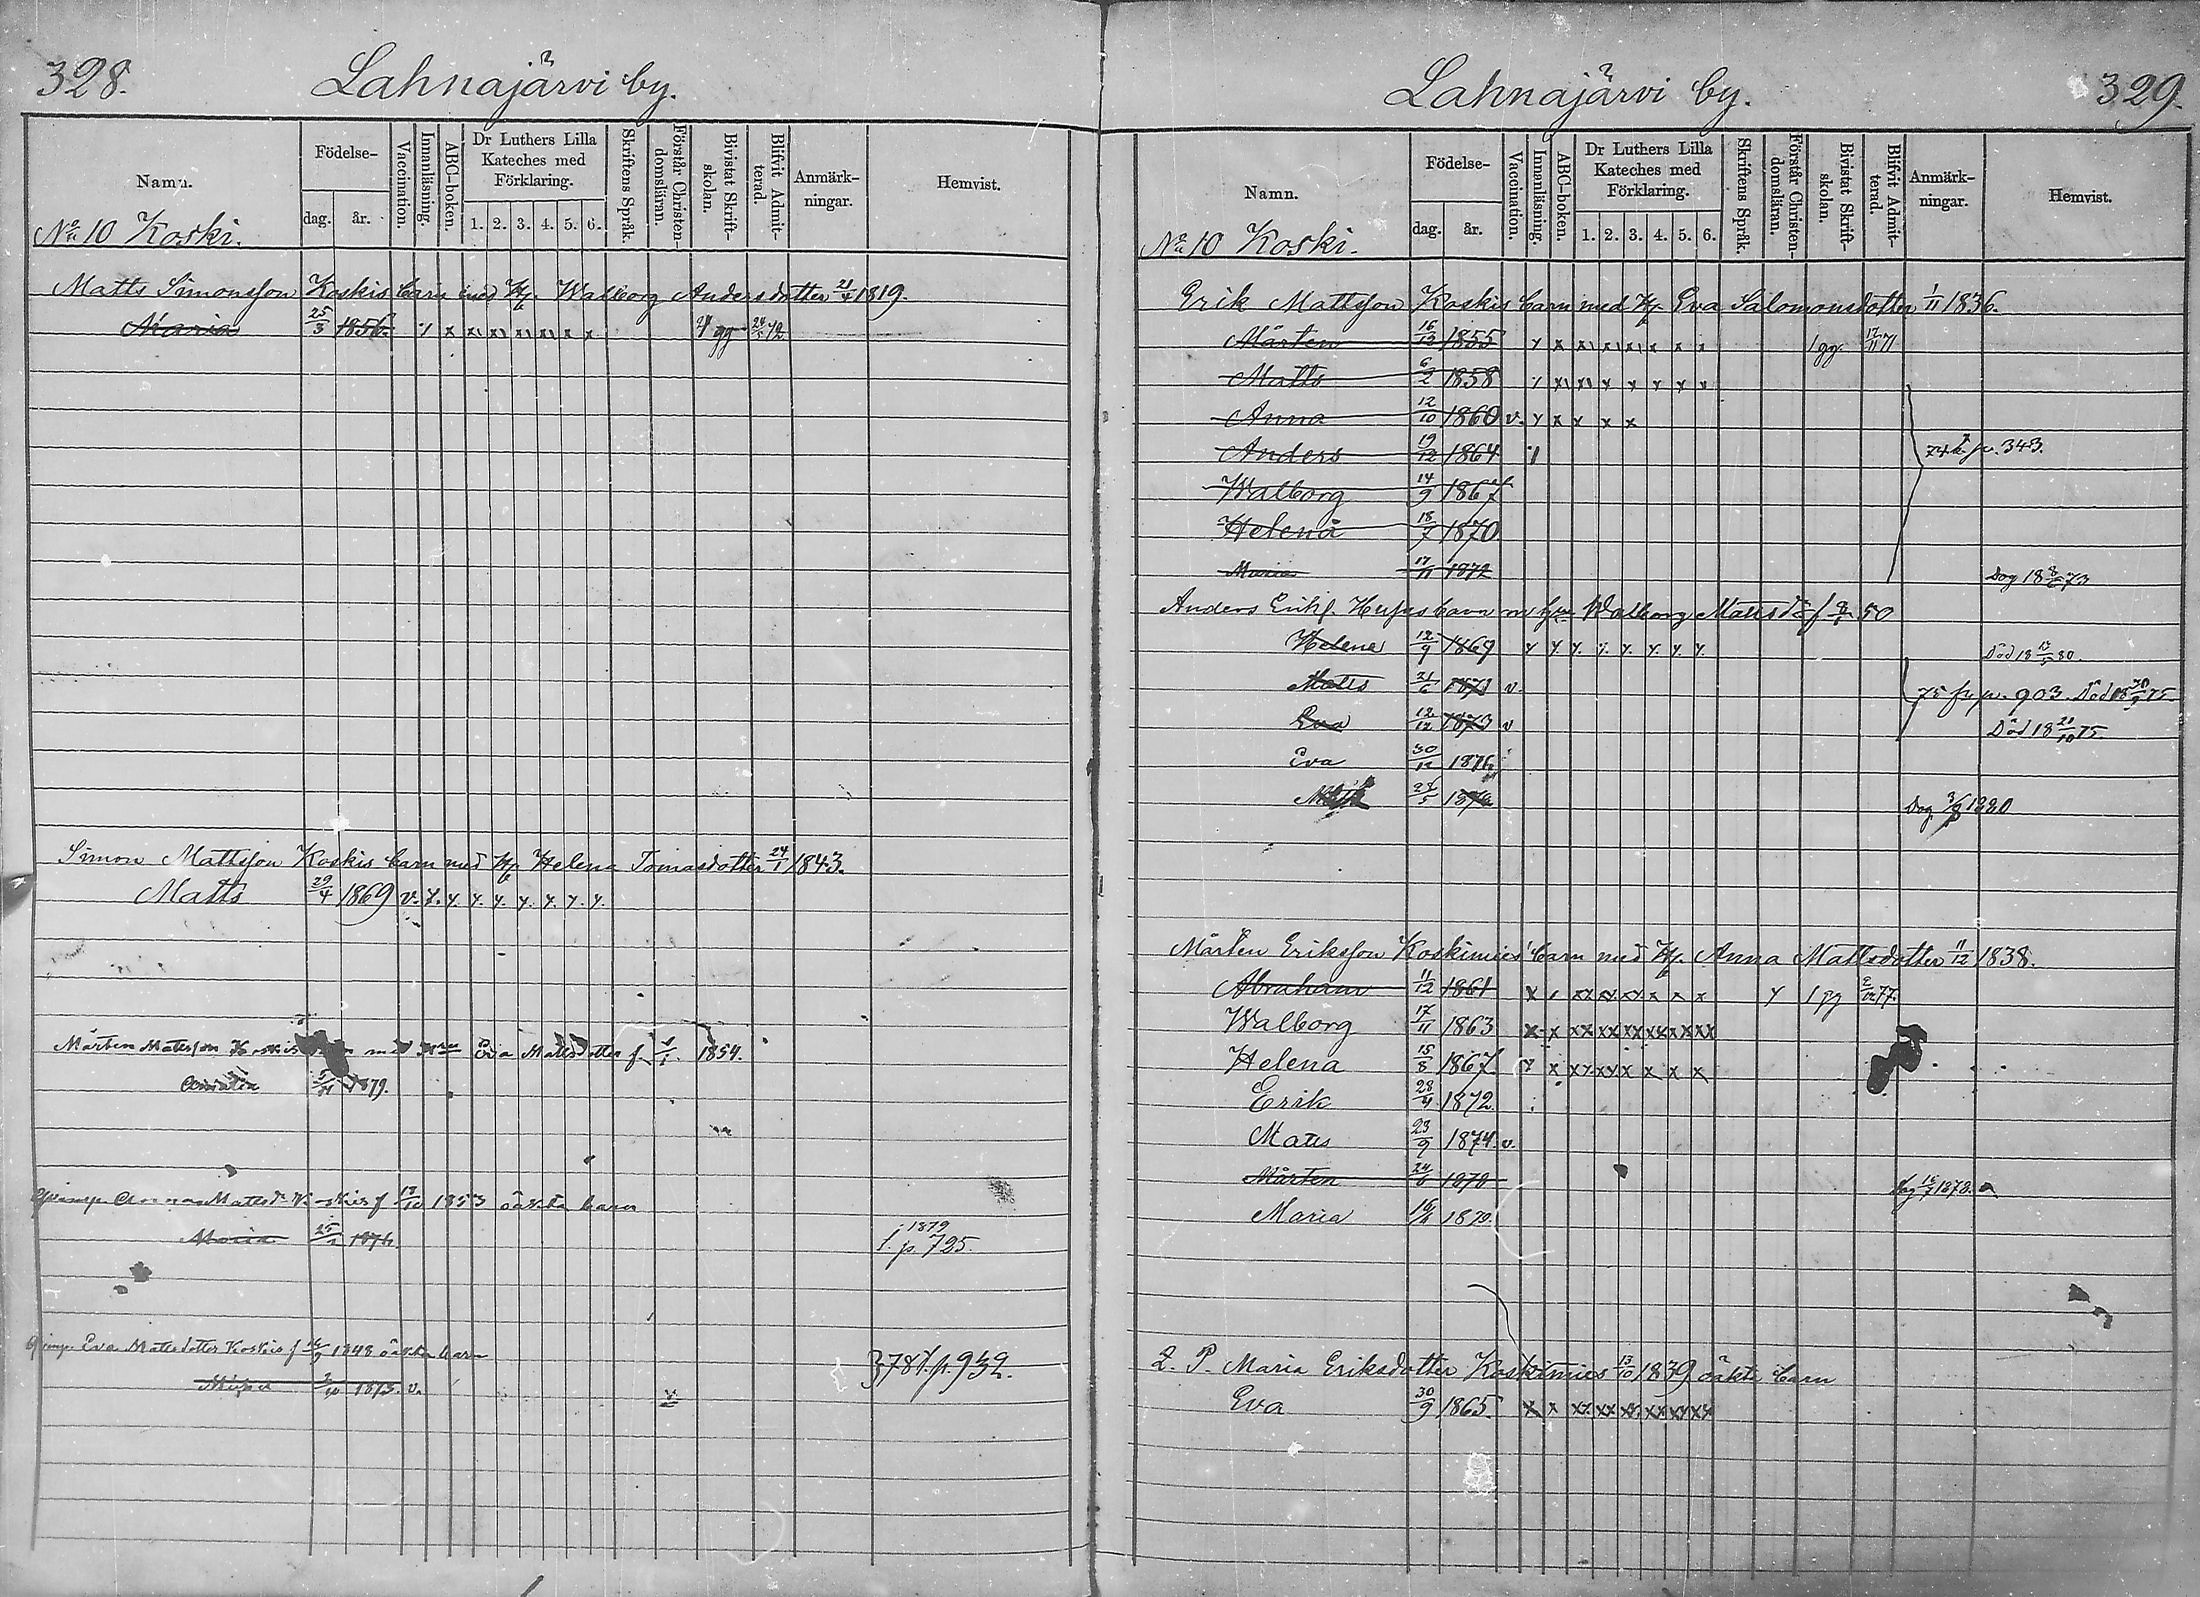 328.
Lahnajärvi by.
Namn.
Födelse-
dag. år.
Vaccination.
Innanläsning.
ABC-boken.
Dr Luthers Lilla
Kateches med
Förklaring.
1. 2. 3. 4. 5. 6.
Skriftens Språk.
Förstår Christen-
domsläran.
Bivistat Skrift-
skolan.
Blifvit Admit-
terad.
Anmärk-
ningar.
Hemvist.
No 10 Koski.
Matts Simonsson Koskis barn med Hu. Walborg Andersdotter 21/4 1819.
Maria 25/3 1856. x x x x x x x gg 72
Simon Mattsson Koskis barn med Hu. Helena Tomasdotter 24/1 1843.
Matts 29/4 1869 v. y. y. y. y. y. y. y. y.
Mårten Matsson Koskis med Eva Mattsdotter f. 1854.
1879.
Mattsd. f 1853 oäkta barn
Maria 1876.
1879
f. p. 725.
Eva Mattsdotter Koskis f 1848 oäkta barn
1873. v.
378 f. p. 932.
329.
Lahnajärvi by.
Namn.
Födelse-
dag. år.
Vaccination.
Innanläsning.
ABC-boken.
Dr Luthers Lilla
Kateches med
Förklaring.
1. 2. 3. 4. 5. 6.
Skriftens Språk.
Förstår Christen-
domsläran.
Bivistat Skrift-
skolan.
Blifvit Admit-
terad.
Anmärk-
ningar.
Hemvist.
No 10 Koski.
Erik Mattsson Koskis barn med Hu. Eva Salomonsdotter 1/11 1836.
Mårten 16/12 1855 y x x x x x x x 1 gg. 17/11 71
Matts 6/2 1858 y x x x x x x x
Anna 12/10 1860 v. y x x x x
Anders 19/12 1864
74 343.
Walborg 14/9 1867
Helena 18/7 1870
Maria 17/11 1872 Dog 18 8/6 73
Anders Barn m Walborg Mattsd f 50
Helena 12/9 1869 y y. y. y. y. y. y. y. Död 18 80.
Matts 21/6 1871 v. 75 903. Död 18 75
Eva 12/12 1873 v Död 18 20/10 75.
Eva 30/12 1876
Dog 1880
Mårten Eriksson Koskimies' barn med Hu. Anna Mattsdotter 11/12 1838.
Abraham 11/12 1861 x xx xx xx x x x y 1 gg 77.
Walborg 17/11 1863 x x xx xx xx xx xx xx
Helena 15/8 1867 y x xx xx x x x x
Erik 28/4 1872
Matts 23/9 1874. v.
Mårten 24/6 1878 Dog 1878.
Maria
Q. P. Maria Eriksdotter Koskimies 13/10 1839 oäkta barn
Eva 30/9 1865. x x xx xx xx xx xx xx